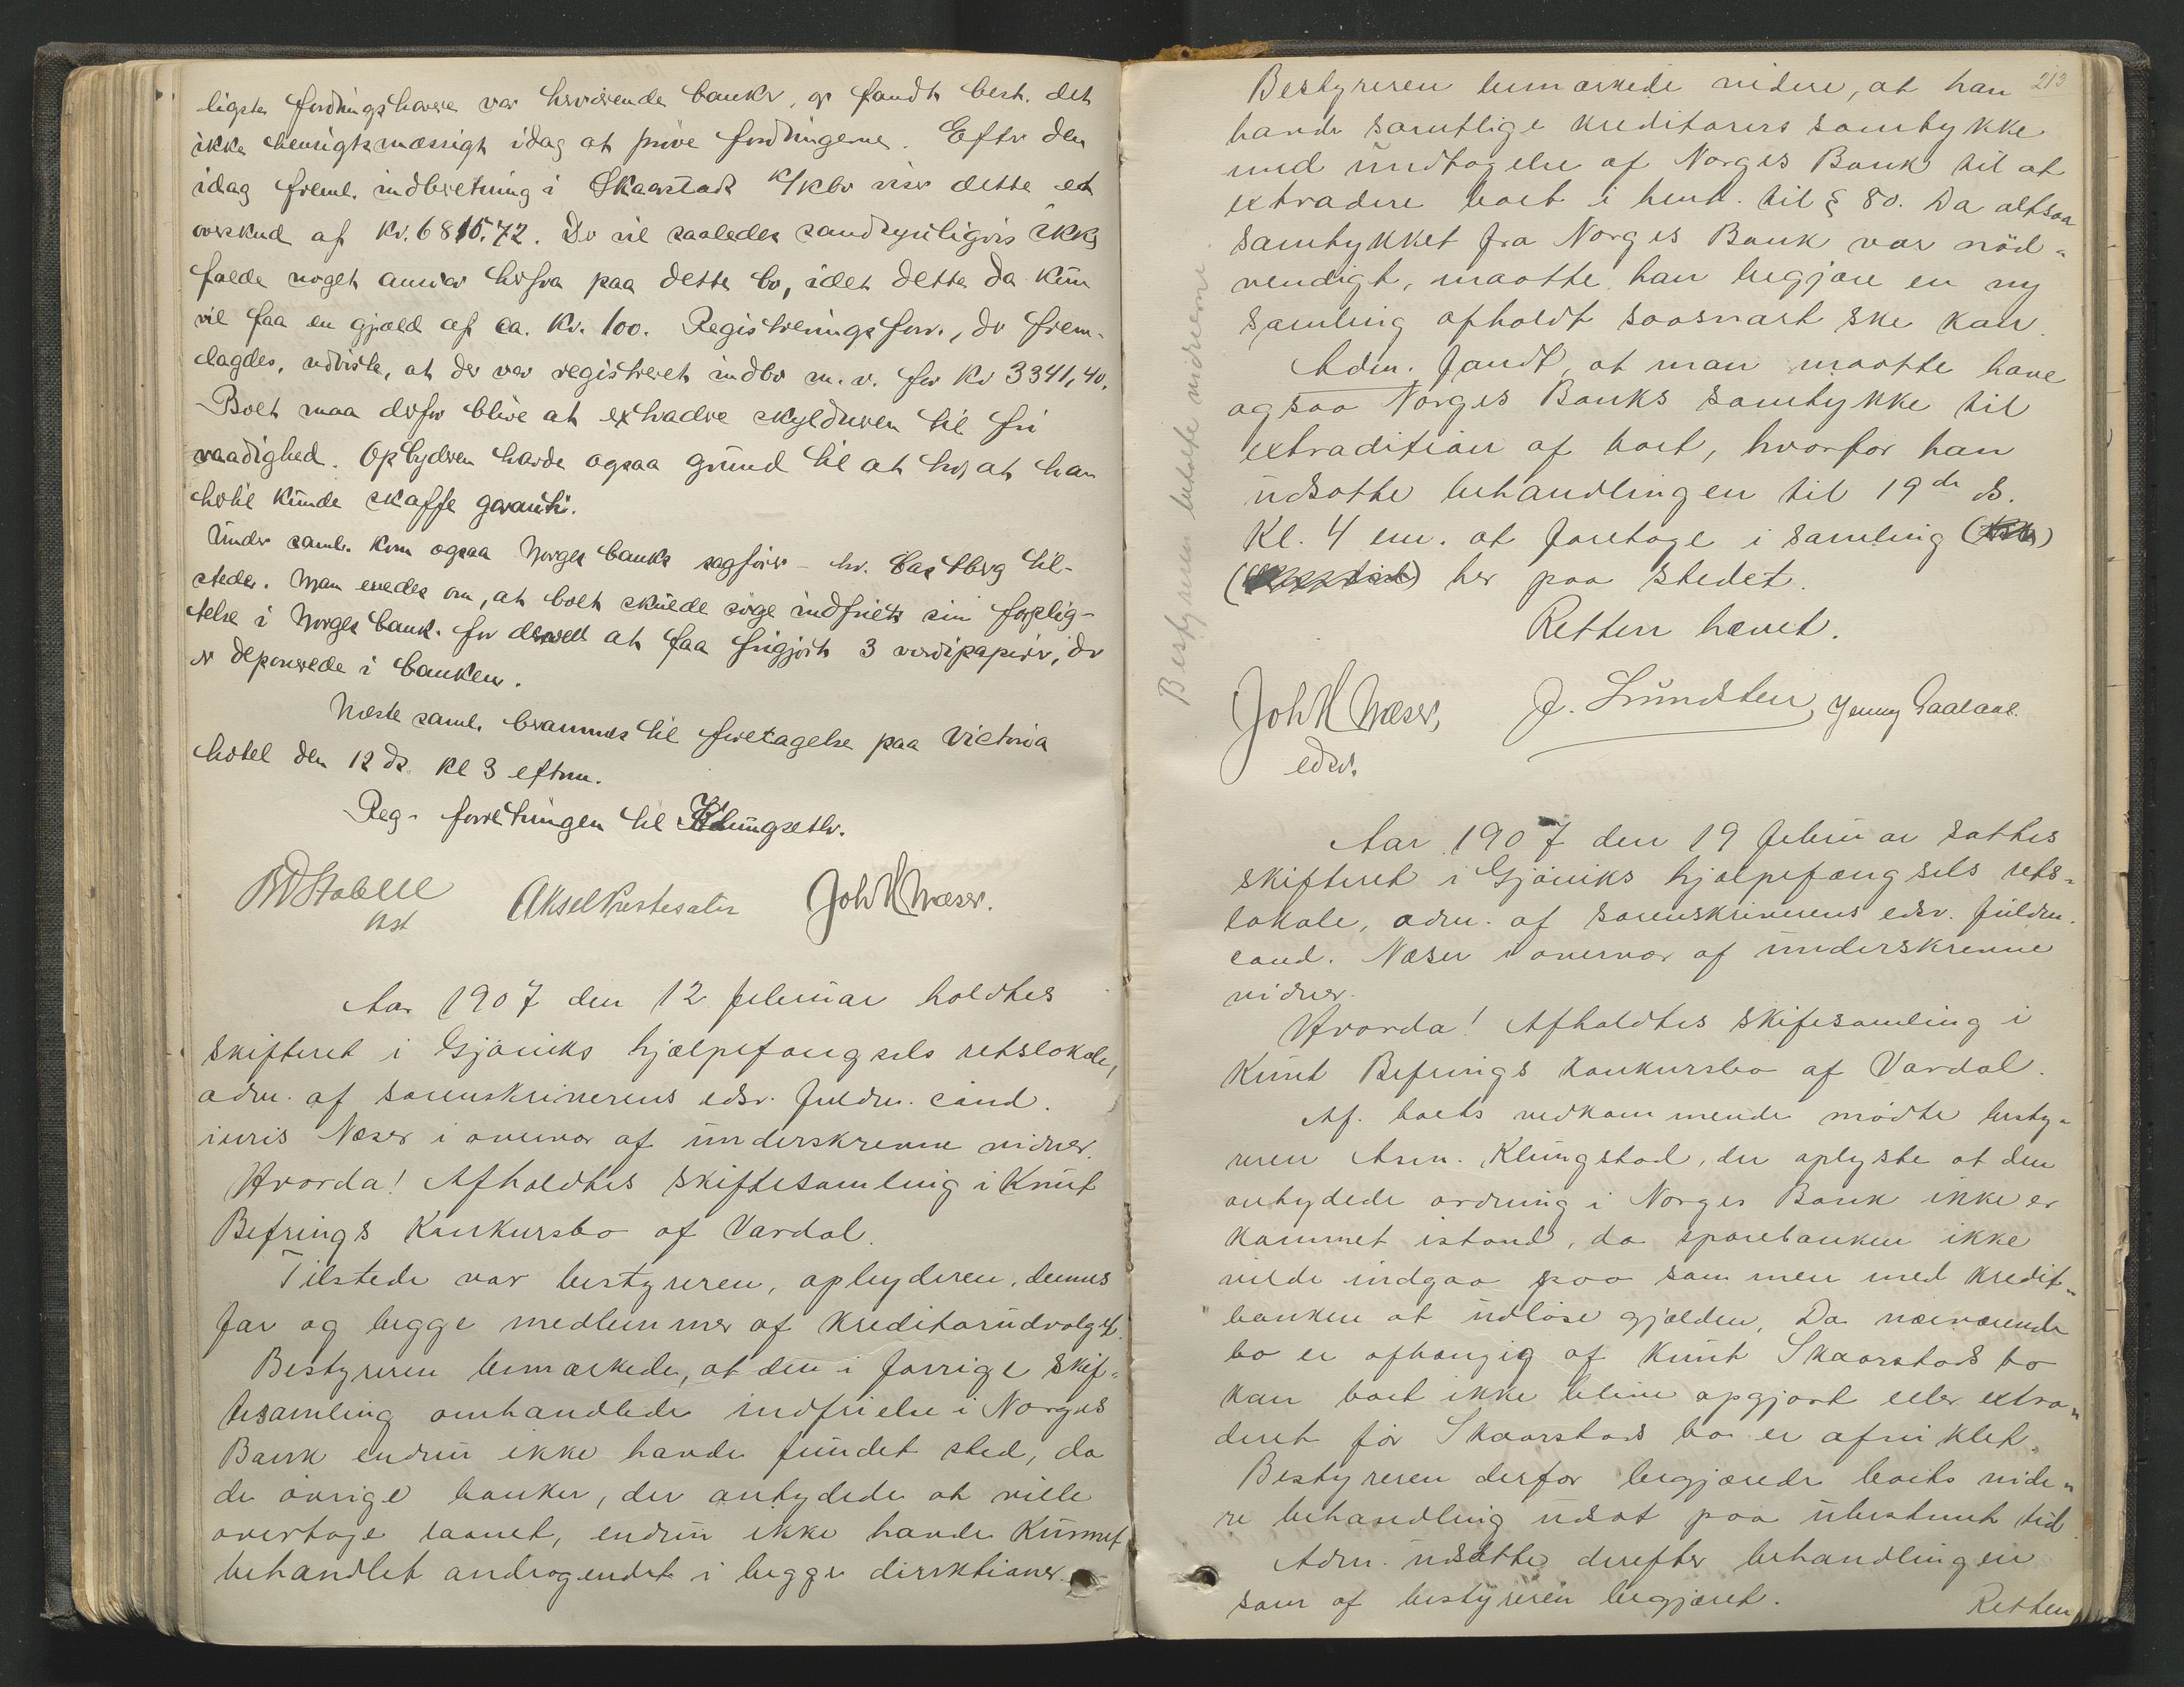 ligste fordringshavere var herværende banker, og fandt best. det
ikke hensigtsmæssigt idag at prøve fordringerne. Efter den
idag freml. indberetning i Skaarstads k/kbo viser dette et
overskud af Kr. 6815,72. Der vil saaledes sandsynligvis ikke
falde noget ansvar herfra paa dette bo, idet dette da kun
vil faa en gjæld af ca. Kr. 100. Registreringsforr., der frem-
lagdes, udviste, at der var registreret indbo m. v. for Kr 3341,40.
Boet maa derfor blive at extradere skyldneren til fri
raadighed. Opbyderen havde ogsaa grund til at tro, at han
hertil kunde skaffe garanti.
Under saml. kom ogsaa Norges banks sagfører - hr. Castberg til-
stede. Man enedes om, at boet skulde søge indfriet sin forplig-
telse i Norges bank. for derved at faa frigjort 3 verdipapirer, der
er deponerede i banken.
Næste saml. berammes til foretagelse paa Victoria
hotel den 12 ds. kl 3 efterm.
Reg- forretningen til Klungseth.
BWStabell
Aksel Prestesater JohKNæser.
Aar 1907 den 12 februar holdtes
skifteret i Gjøviks hjælpefængsels retslokale,
adm. af sorenskriverens edsv. fuldm. cand.
iuris Næser i overvær af underskrevne vidner.
Hvorda! Afholdtes skiftesamling i Knut
Befrings Konkursbo af Vardal.
Tilstede var bestyreren, opbyderen, dennes
far og begge medlemmer af kreditorudvalget.
Bestyreren bemærkede, at den i forrige skif-
tesamling omhandlede indfrielse i Norges
Bank endnu ikke havde fundet sted, da
de øvrige banker, der antydede at ville
overtage laanet, endnu ikke havde kunnet
behandlet andragendet i begge direktioner.
213
Bestyreren bemærkede videre, at han
havde samtlige kreditorers samtykke
med undtagelse af Norges Bank til at
extradere boet i henh. til § 80. Da altsaa
samtykket fra Norges Bank var nød-
vendigt, maatte han begjære en ny
samling afholdt saasnart ske kan.
Adm. fandt, at man maatte have
ogsaa Norges Banks samtykke til
extradition af boet, hvorfor han
udsatte behandlingen til 19de ds.
Kl. 4 em. at foretage i samling
her paa stedet.
Retten hævet.
Bestyreren betalte vidnerne
JohKNæser, J. Lundsten, Jenny Gaalaas.
edsv.
Aar 1907 den 19 februar sattes
skifteret i Gjøviks hjælpefængsels rets-
lokale, adm. af sorenskriverens edsv. fuldm.
cand. Næser i overvær af underskrevne
vidner.
Hvorda! Afholdtes skifesamling i
Knut Befrings konkursbo af Vardal.
Af boets vedkommende mødte besty-
reren Asm. Klungstad, der oplyste at den
antydede ordning i Norges Bank ikke er
kommet istand, da sparebanken ikke
vilde indgaa paa sammen med kredit-
banken at udløse gjælden. Da nærværende
bo er afhængig af Knut Skaarstads bo
kan boet ikke blive opgjort eller extra-
deret før Skaarstads bo er afviklet.
Bestyreren derfor begjærede boets vide-
re behandling udsat paa ubestemt tid.
Adm. udsatte derefter behandlingen
som af bestyreren begjæret.
Retten